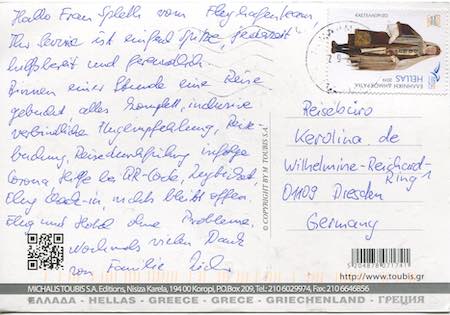 Hallo Frau Splett vom Flughafenteam,
Ihr Service ist einfach spitze, jederzeit
hilfsbereit und freundlich.
Binnen einer Stunde eine Reise
gebucht, alles komplett, inclusive
verbindliche Flugempfehlung, Reise-
buchung, infolge
Corona Hilfe bei QR-Code,
Flug Check-in, nichts bleibt offen.
Flug und Hotel ohne Probleme.
Nochmals vielen Dank
von Familie
ΚΑΣΤΕΛΛΟΡΙΖΟ
ΕΛΛΗΝΙΚΗ ΔΗΜΟΚΡΑΤΙΑ
HELLAS
Reisebüro
Karolina.de
Wilhelmine-Reichard-
Ring 1
01109 Dresden
Germany
© COPYRIGHT BY M. TOUBIS S.A.
5 204878 071741
http://www.toubis.gr
MICHALIS TOUBIS S.A. Editions, Nisiza Karela, 194 00 Koropi, P.O.Box 209, Tel.: 210 6029974, Fax: 210 6646856
ΕΛΛΑΔΑ - HELLAS - GREECE - GRECE - GRIECHENLAND - ГРЕЦИЯ